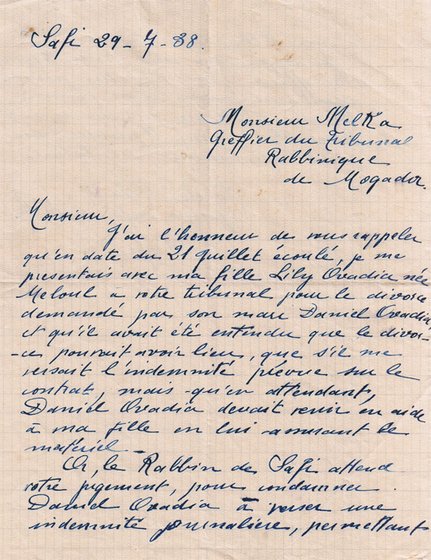 Safi 29-7-38.
Monsieur Melka
Greffier du Tribunal
Rabbinique
de Mogador.
Monsieur,
J'ai l'honneur de vous rappeler
qu'en date du 21 Juillet écoulé, je me
presentais avec ma fille Lily Ovadia née
Meloul a votre tribunal pour le divorce
demandé par son mari Daniel Ovadia,
et qu'il avait été entendu que le divor-
-ce pourrait avoir lieu, que s'il me
versait l'indemnité prévue sur le
contrat, mais qu'en attendant,
Daniel Ovadia devait venir en aide
à ma fille en lui assurant le
matériel -
Or, le Rabbin de Safi attend
votre jugement, pour condamner
Daniel Ovadia à verser une
indemnité journalière, permettant